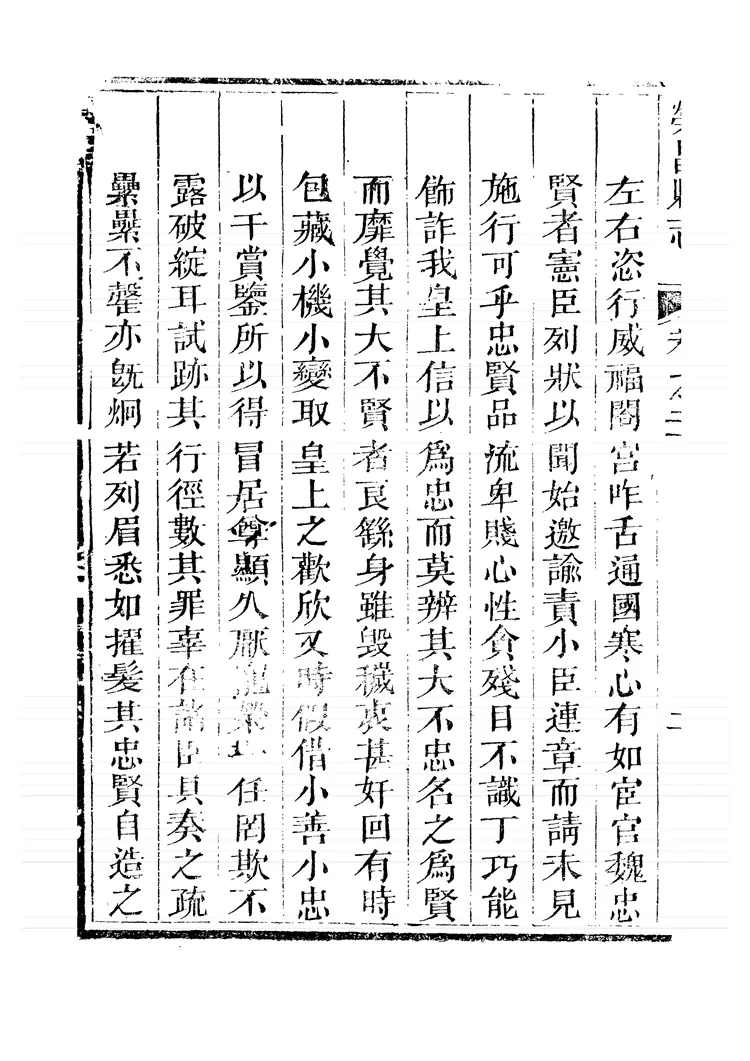 左右恣行威福閣宮咋舌通國寒心有如宦官魏忠
賢者憲臣列狀以聞始邀諭責小臣連章而請未見
施行可乎忠賢品流卑賤心性貪殘目不識丁巧能
飾詐我皇上信以爲忠而莫辨其大不忠名之爲賢
而靡覺其大不賢者良繇身雖毀穢衷甚奸回有時
包藏小機小變取皇上之歡欣又時假借小善小忠
以干賞鑒所以得冒居顯久厭任罔欺不
露破綻耳試跡其行徑數其罪辜在臣具奏之疏
纍纍不罄亦旣炯若列眉悉如擢髮其忠賢自造之